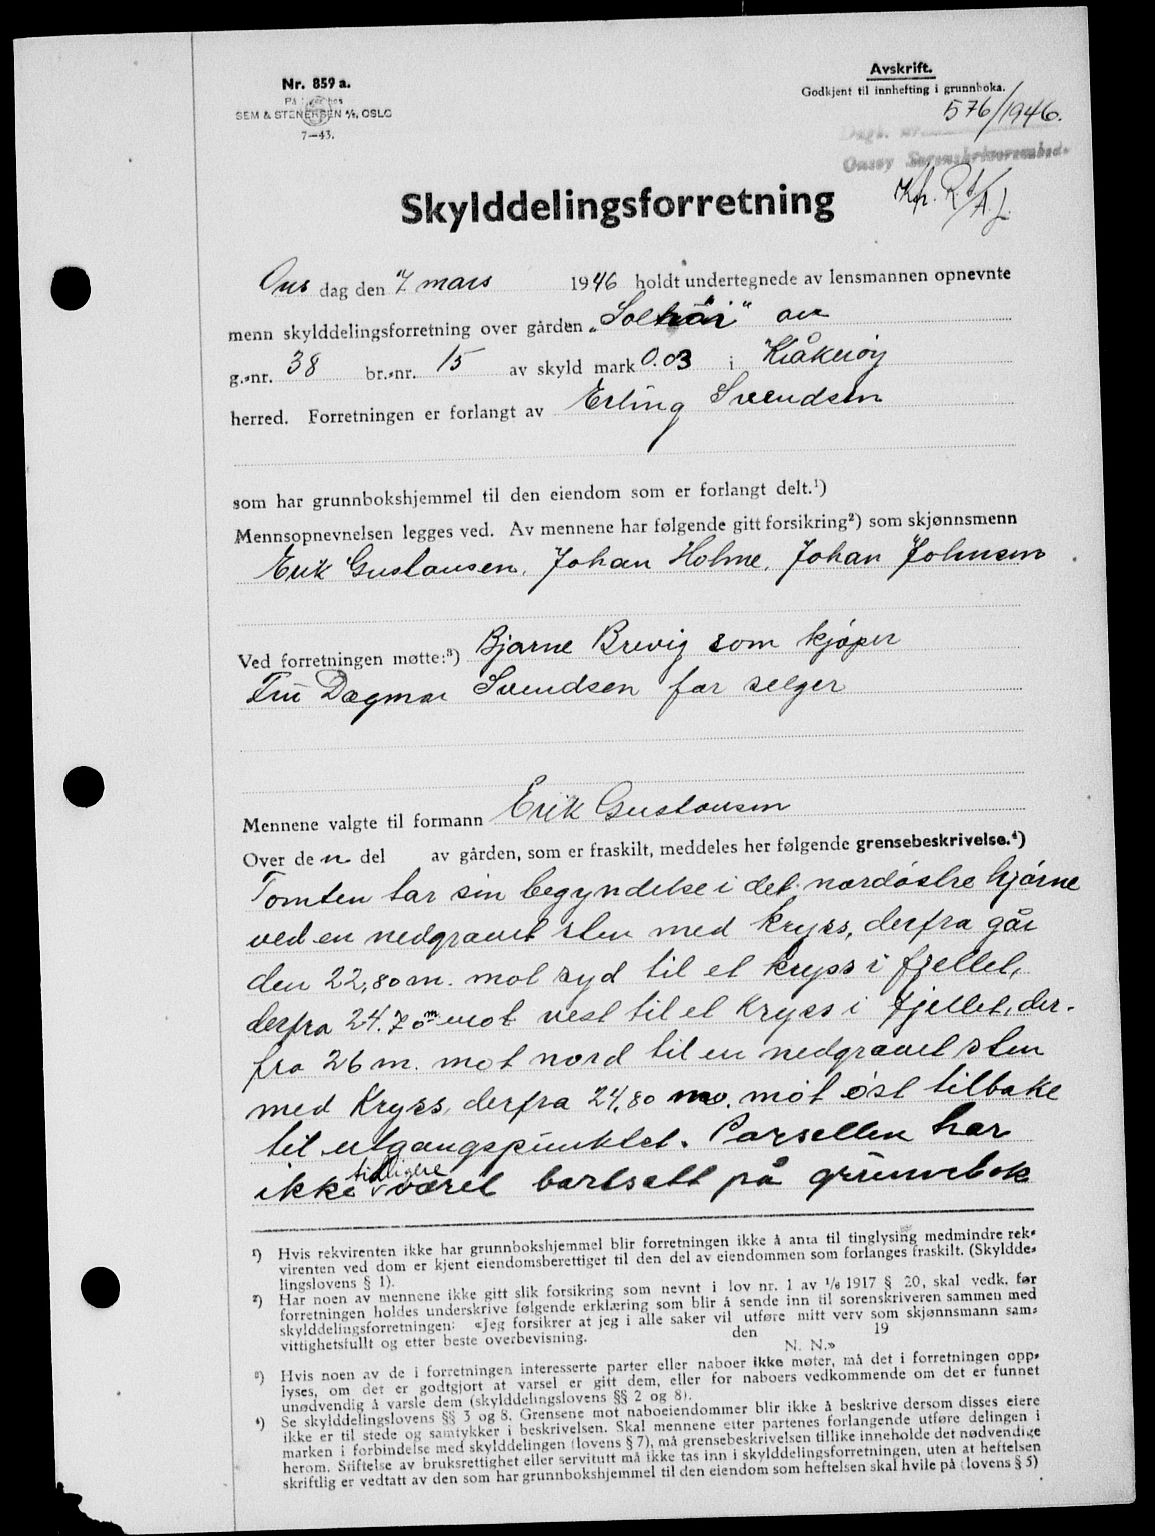 Nr. 859 a.
På lager hos
SEM & STENERSEN A/S, OSLO
7—43.
Avskrift.
Godkjent til innhefting i grunnboka.
576/1946.
Dagb. nr.
Onsøy Sorenskriverembede
Skylddelingsforretning
Ons dag den 7 mars 1946 holdt undertegnede av lensmannen opnevnte
menn skylddelingsforretning over gården „Solhøi" av
g.-nr. 38 br.-nr. 15 av skyld mark 0.03 i Kråkerøy
herred. Forretningen er forlangt av Erling Svendsen
som har grunnbokshjemmel til den eiendom som er forlangt delt.¹)
Mennsopnevnelsen legges ved. Av mennene har følgende gitt forsikring²) som skjønnsmenn
Erik Gustavsen, Johan Holme, Johan Johnsen
Ved forretningen møtte:³) Bjarne Brevig som kjøper
Fru Dagmar Svendsen for selger
Mennene valgte til formann Erik Gustavsen
Over de n del av gården, som er fraskilt, meddeles her følgende grensebeskrivelse.⁴)
Tomten tar sin begyndelse i det nordøstre hjørne
ved en nedgravet sten med kryss, derfra går
den 22,80 m. mot syd til et kryss i fjellet,
derfra 24.70 m mot vest til et kryss i fjellet, der-
fra 26 m. mot nord til en nedgravet sten
med kryss, derfra 24,80 m. mot øst tilbake
til utgangspunktet. Parsellen har
ikke tidligere været bortsatt på grunnebok
¹) Hvis rekvirenten ikke har grunnbokshjemmel blir forretningen ikke å anta til tinglysing medmindre rek-
virenten ved dom er kjent eiendomsberettiget til den del av eiendommen som forlanges fraskilt. (Skyldde-
lingslovens § 1).
²) Har noen av mennene ikke gitt slik forsikring som nevnt i lov nr. 1 av 1/6 1917 § 20, skal vedk. før
forretningen holdes underskrive følgende erklæring som blir å sende inn til sorenskriveren sammen med
skylddelingsforretningen: «Jeg forsikrer at jeg i alle saker vil utføre mitt verv som skjønnsmann sam-
vittighetsfullt og etter beste overbevisning. den 19
N. N.»
³) Hvis noen av de i forretningen interesserte parter eller naboer ikke møter, må det i forretningen opp-
lyses, om det er godtgjort at varsel er gitt dem, eller for naboers vedkommende om det er funnet
unødvendig å varsle dem (skylddelingslovens §§ 2 og 8).
⁴) Se skylddelingslovens §§ 3 og 8. Grensene mot naboeiendommer blir ikke å beskrive dersom disses eiere
ikke er til stede og samtykker i beskrivelsen. Skal mennene etter partenes forlangende utføre delingen i
marken i forbindelse med skylddelingen (lovens § 7), må grensebeskrivelsen tillike inneholde det nødvendige
herom. Stiftelse av bruksrettighet eller servitutt må ikke tas inn i skylddelingsforretningen, uten at heftelsen
skriftlig er vedtatt av den som har grunnbokshjemmel til den eiendom som heftelsen skal hvile på (lovens § 5)